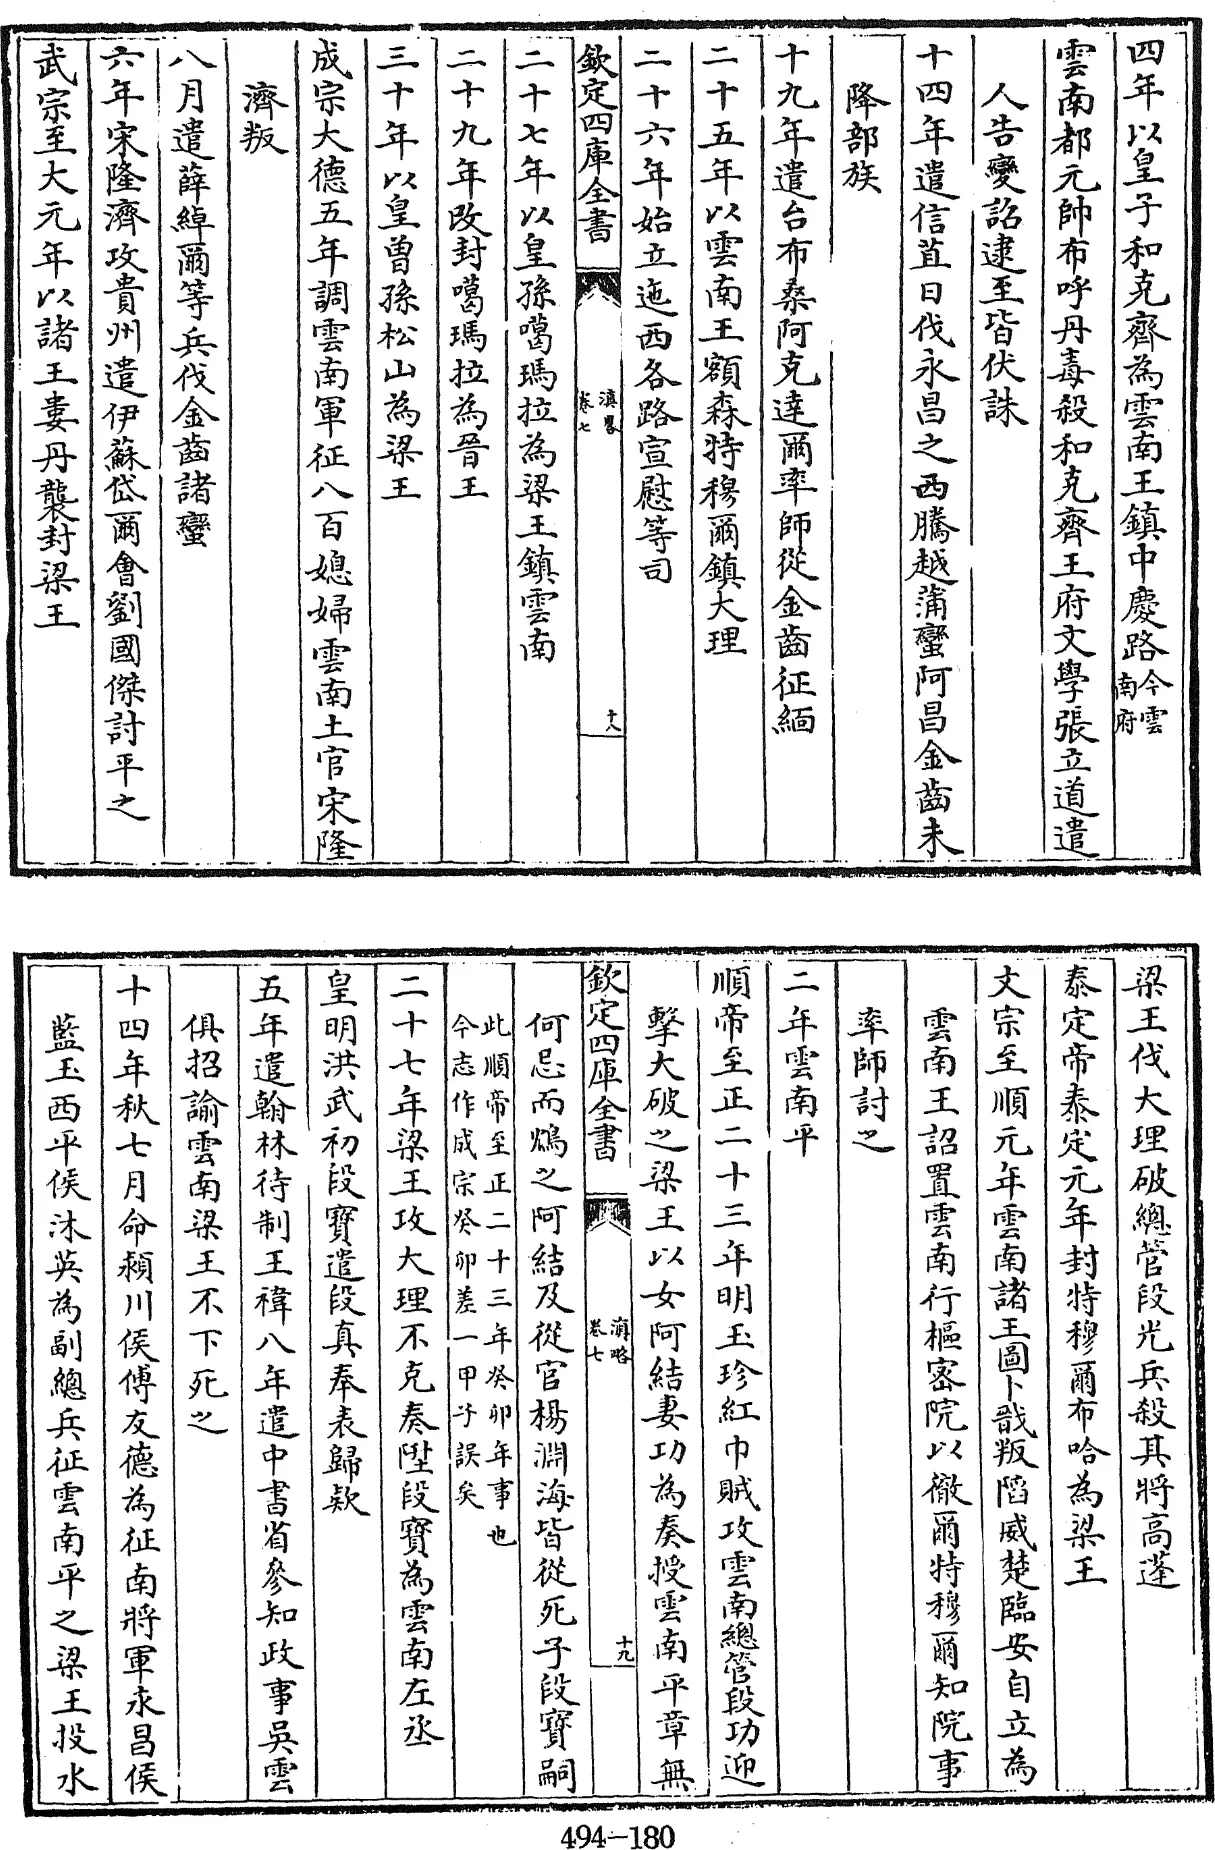 四年以皇子和克齊為雲南王鎮中慶路今雲南府
雲南都元帥布呼丹毒殺和克齊王府文學張立道遣
人告變詔逮至皆伏誅
十四年遣信苴日伐永昌之西騰越蒲蠻阿昌金齒未
降部族
十九年遣台布桑阿克達爾率師從金齒征緬
二十五年以雲南王額森特穆爾鎮大理
二十六年始立迤西各路宣慰等司
欽定四庫全書
滇畧
卷七
十八
二十七年以皇孫噶瑪拉為梁王鎮雲南
二十九年改封噶瑪拉為晉王
三十年以皇曾孫松山為梁王
成宗大德五年調雲南軍征八百媳婦雲南土官宋隆
濟叛
八月遣薛綽爾等兵伐金齒諸蠻
六年宋隆濟攻貴州遣伊蘇岱爾會劉國傑討平之
武宗至大元年以諸王婁丹襲封梁王
梁王伐大理破總管段光兵殺其將高蓬
泰定帝泰定元年封特穆爾布哈為梁王
文宗至順元年雲南諸王圖卜戩叛陷威楚臨安自立為
雲南王詔置雲南行樞密院以徹爾特穆爾知院事
率師討之
二年雲南平
順帝至正二十三年明玉珍紅巾賊攻雲南總管段功迎
擊大破之梁王以女阿結妻功為奏授雲南平章無
欽定四庫全書
滇略
卷七
十九
何忌而鴆之阿結及從官楊淵海皆從死子段寶嗣
此順帝至正二十三年癸卯年事也
今志作成宗癸卯差一甲子誤矣
二十七年梁王攻大理不克奏陞段寶為雲南左丞
皇明洪武初段寶遣段真奉表歸款
五年遣翰林待制王禕八年遣中書省參知政事吳雲
俱招諭雲南梁王不下死之
十四年秋七月命潁川侯傅友德為征南將軍永昌侯
藍玉西平侯沐英為副總兵征雲南平之梁王投水
494-180